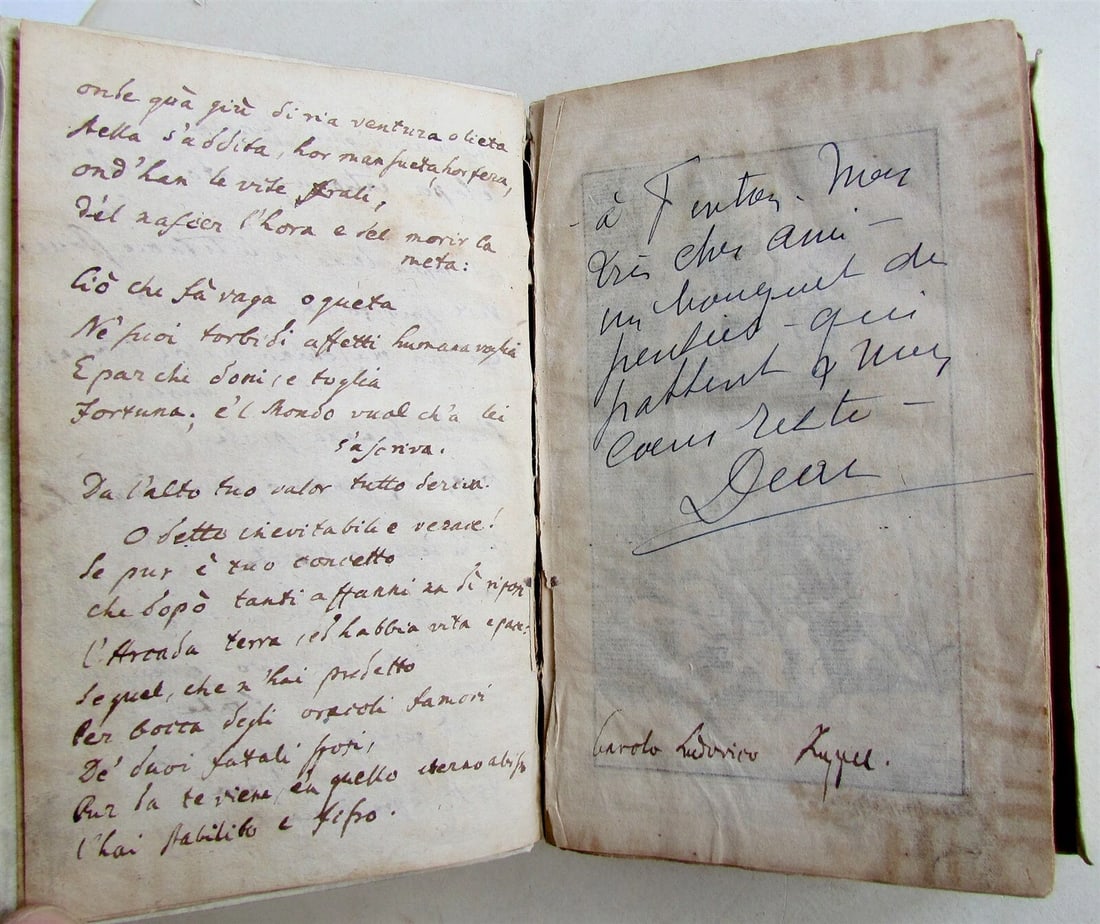 onde quà giù di ria ventura o lieta
stella s'addita, hor mansueta, hor fera,
ond' han le vite frali,
del nascer l'hora e del morir la
meta:
Ciò che fà vaga o queta
Ne' suoi torbidi affetti humana voglia
E par che doni, e toglia
Fortuna; e'l Mondo vuol ch'a lei
s'ascriva.
Da l'alto tuo valor tutto deriva.
O detto inevitabile verace!
Se pur è tuo concetto
che dopò tanti affanni un dì riposi
l'Arcada terra, ed habbia vita e pace;
Se quel, che n'hai predetto
Per bocca degli oracoli famosi
De' duoi fatali sposi,
Pur da te viene, e'n quello eterno abisso
l'hai stabilito e fisso.
- à Fenton. Mon
très cher ami -
un bouquet de
pensées - qui
partent de mon
coeur reste -
Dear
Carolo Ludovico